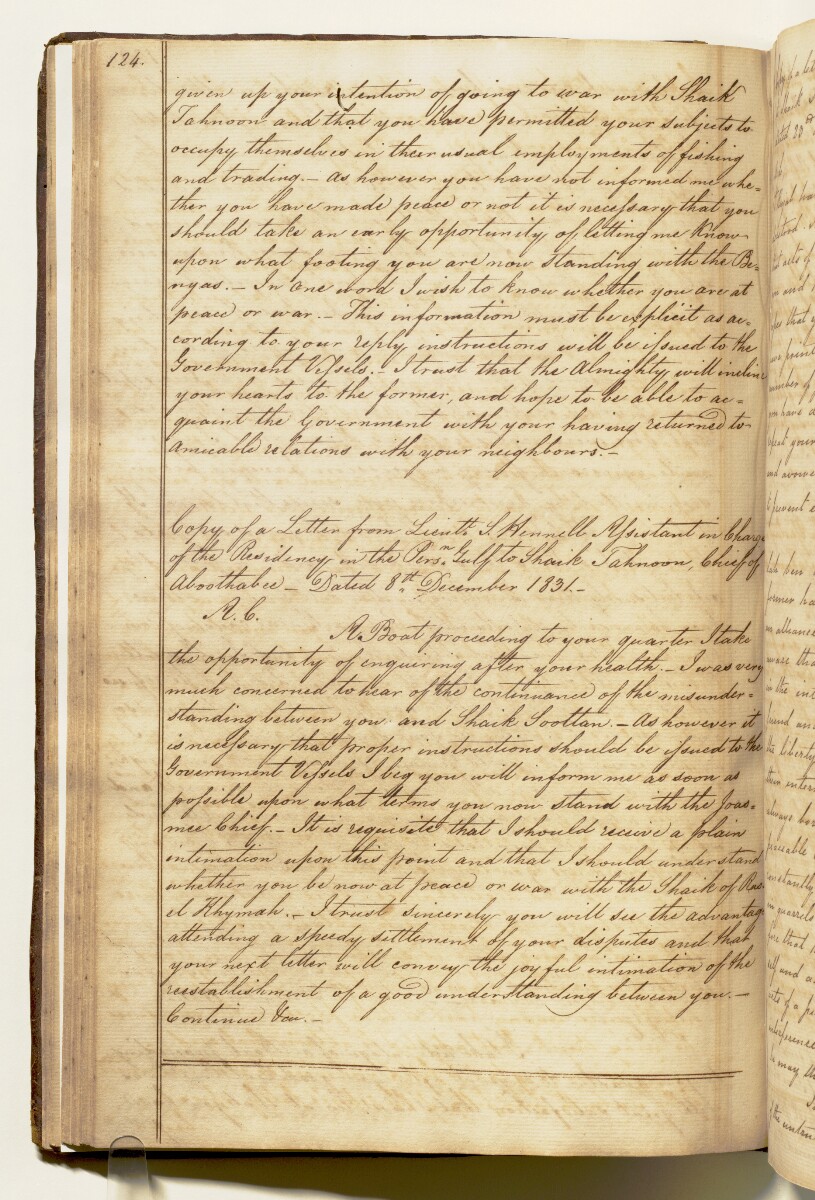 124.
given up your intention of going to war with Shaik
Tahnoon and that you have permitted your subjects to
occupy themselves in their usual employments of fishing
and trading.— As however you have not informed me whe=
ther you have made peace or not it is necessary that you
should take an early opportunity of letting me know
upon what footing you are now standing with the Be=
nyas.— In one word I wish to know whether you are at
peace or war.— This information must be explicit as ac=
cording to your reply instructions will be issued to the
Government Vessels.— I trust that the Almighty will incline
your hearts to the former, and hope to be able to ac=
quaint the Government with your having returned to
amicable relations with your neighbours.—
Copy of a Letter from Lieutt. S. Hennell Assistant in Charge
of the Residency in the Persn. Gulf to Shaik Tahnoon, Chief of
Aboothabee — Dated 8th. December 1831.—
A. C.
A Boat proceeding to your quarter I take
the opportunity of enquiring after your health.— I was very
much concerned to hear of the continuance of the misunder=
standing between you and Shaik Sooltan.— As however it
is necessary that proper instructions should be issued to the
Government Vessels I beg you will inform me as soon as
possible upon what terms you now stand with the Joas=
mee Chief.— It is requisite that I should receive a plain
intimation upon this point and that I should understand
whether you be now at peace or war with the Shaik of Ras
el Khymah.— I trust sincerely you will see the advantage
attending a speedy settlement of your disputes and that
your next letter will convey the joyful intimation of the
reestablishment of a good understanding between you.—
Continue &ca.—